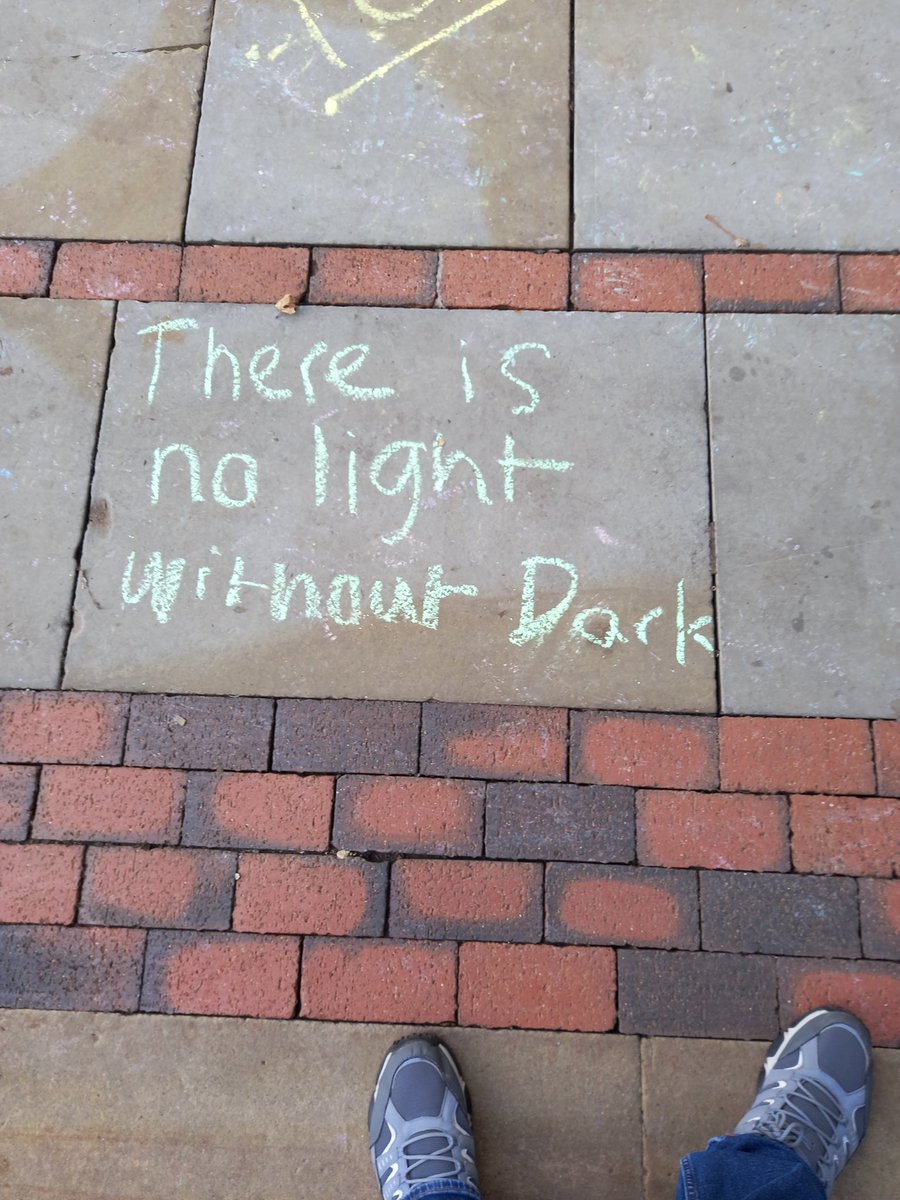 There is
no light
without Dark